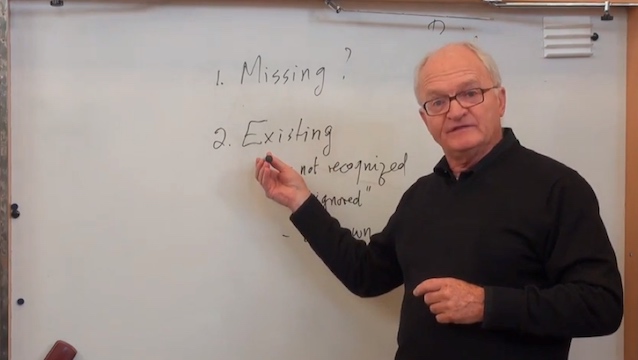 1. Missing?
2. Existing
not recognized
ignored"
-